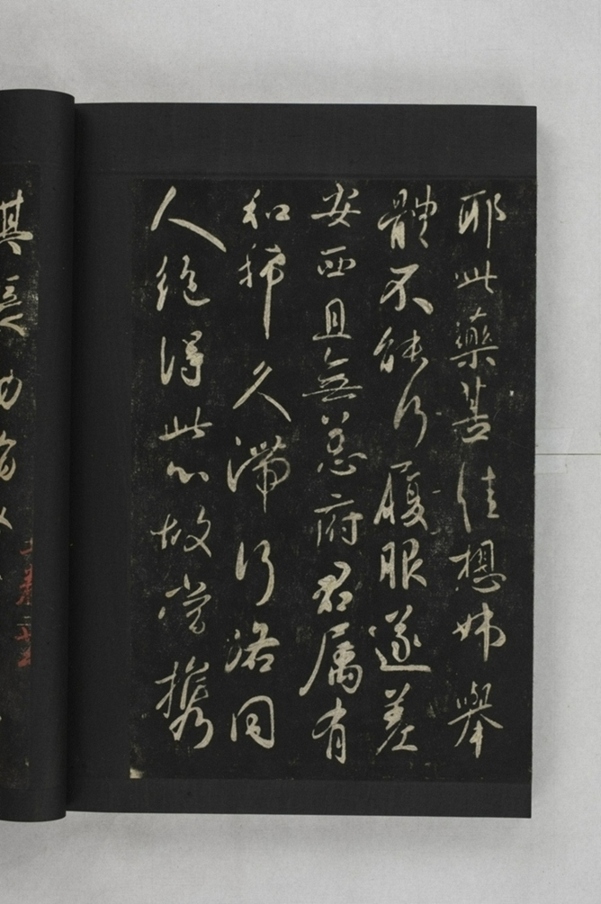 耶此藥甚佳想姊舉
體不能行履眼遂差
安西且無恙府君属有
和久滯行洛同
人絶得此心故嘗携
其